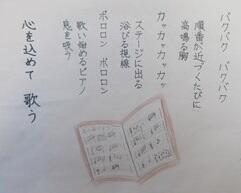 バクバク　バクバク
順番が近づくたびに
高鳴る胸
カァカァカァカァ
ステージに出る
浴びる視線
ポロロン　ポロロン
歌い始めるピアノ
息を吸う
心を込めて　歌う